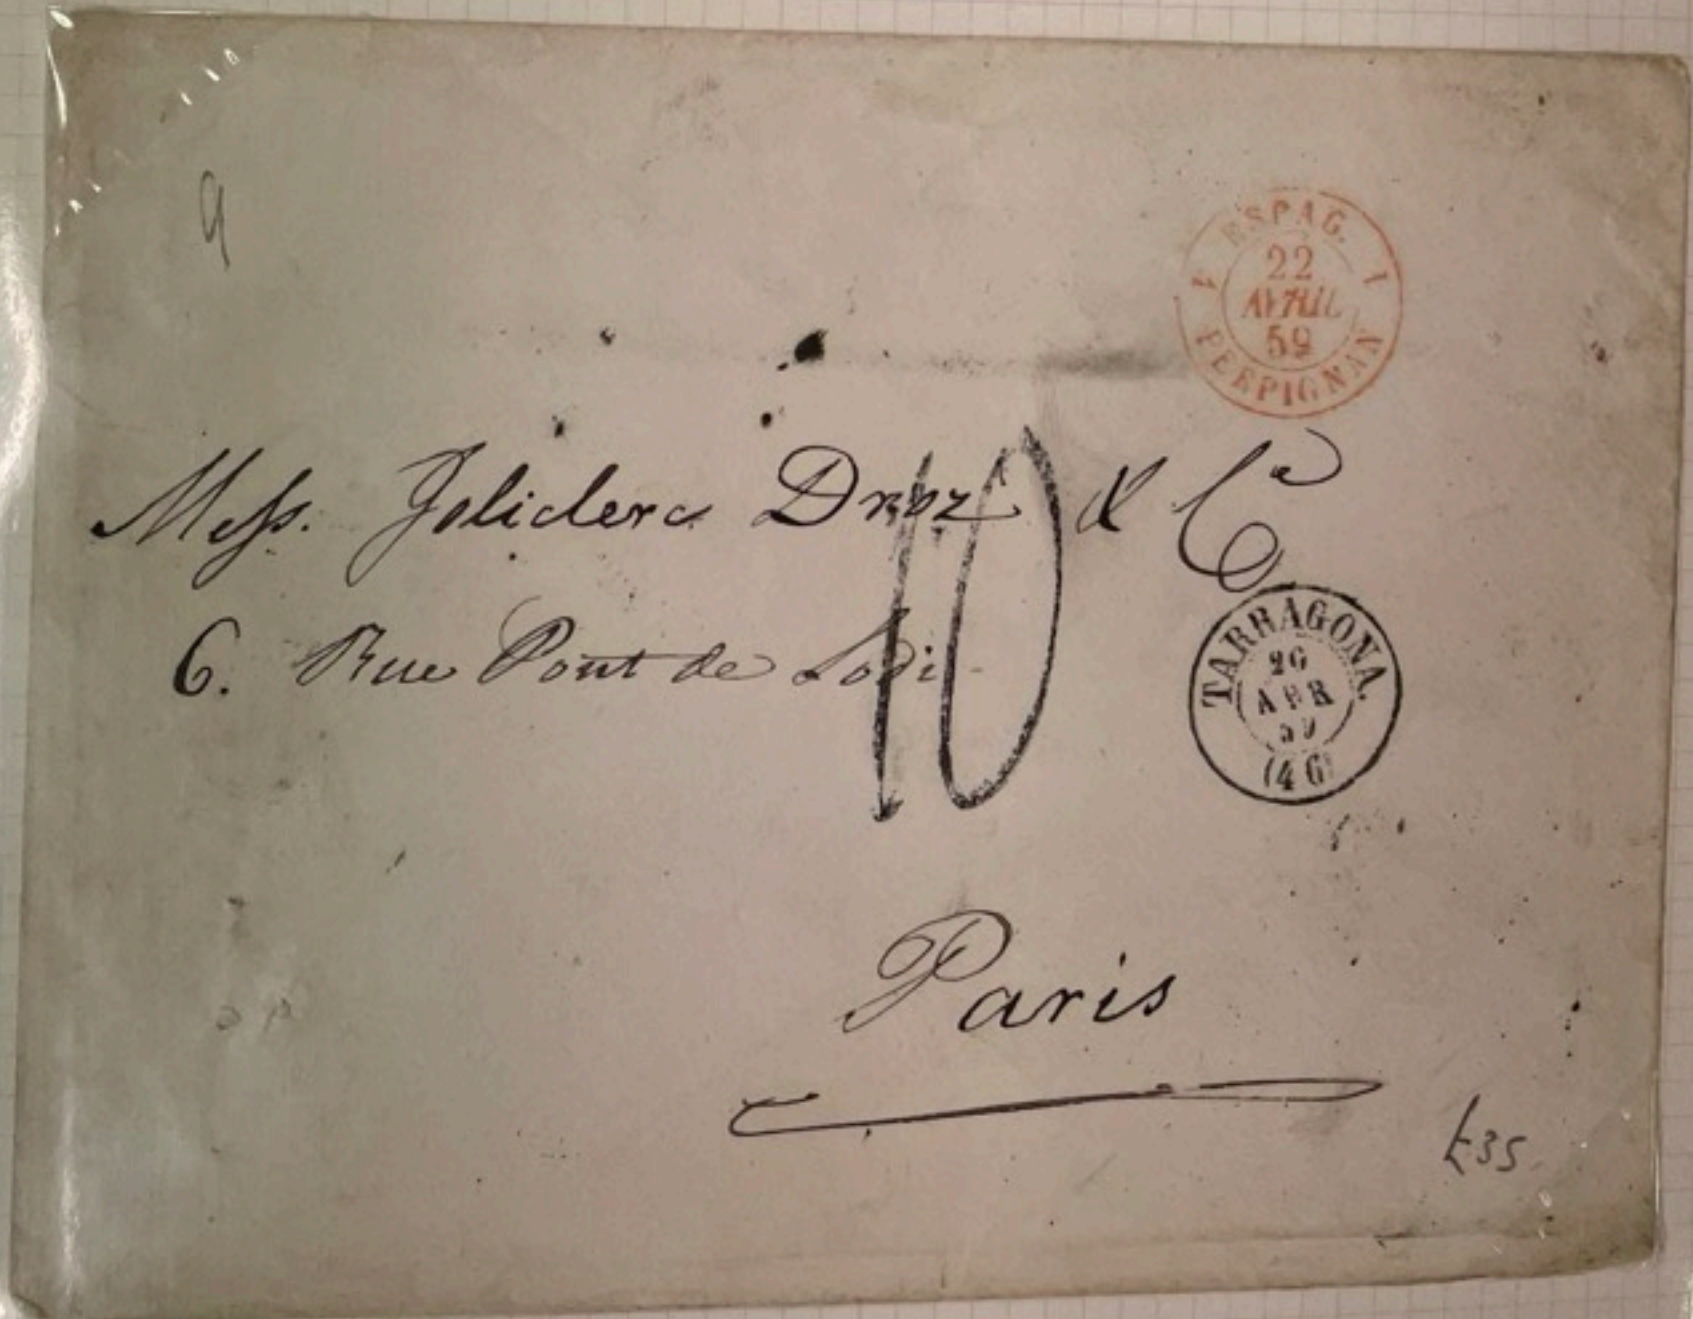 9
1 ESPAG. 1
22
AVRIL
59
PERPIGNAN
Mess. Joliclerc Droz & Cie
10
6. Rue Pont de Lodi
TARRAGONA.
20
ABR
59
(46)
Paris
£35